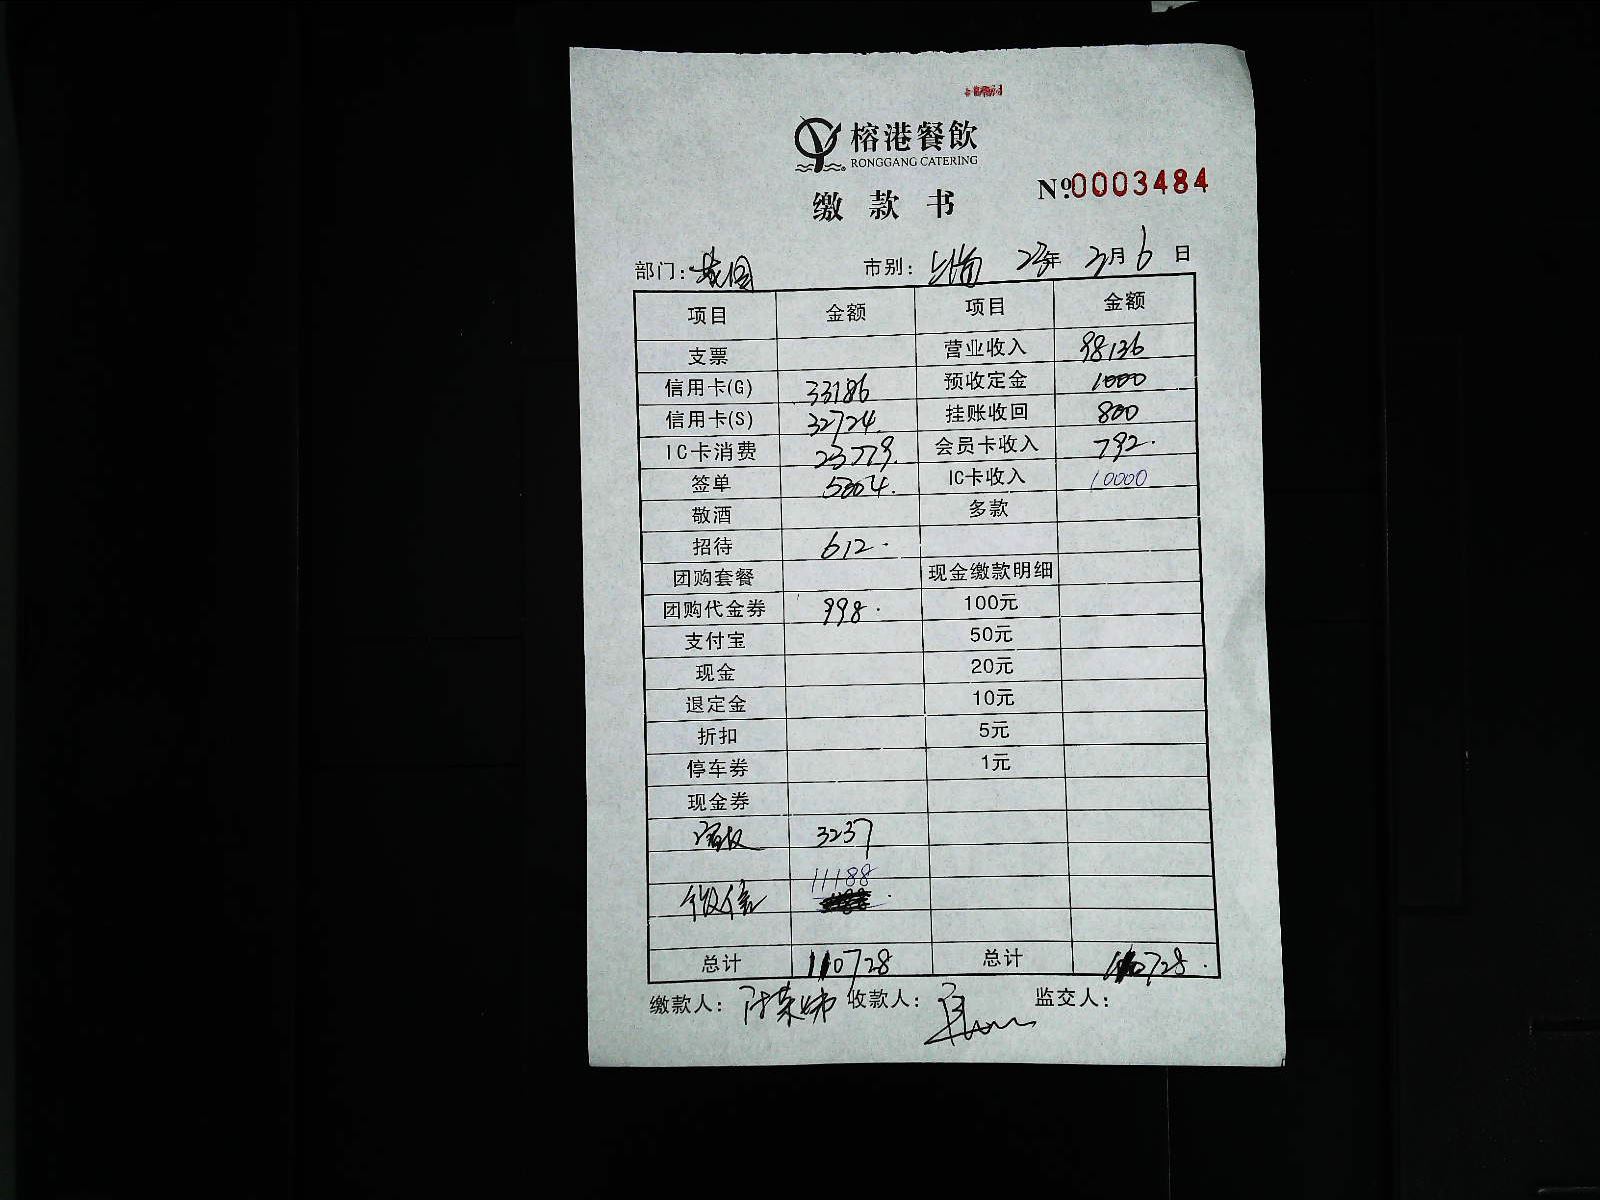 榕港餐飲
RONGGANG CATERING
缴款书
No.0003484
部门: 市别: 上海 23年 3月 6日
项目 金额 项目 金额
支票 营业收入 98136
信用卡(G) 33186 预收定金 1000
信用卡(S) 32724. 挂账收回 800
IC卡消费 23779. 会员卡收入 792.
签单 5004. IC卡收入 10000
敬酒 多款
招待 612.
团购套餐 现金缴款明细
团购代金券 998. 100元
支付宝 50元
现金 20元
退定金 10元
折扣 5元
停车券 1元
现金券
3237
11188
微信
总计 110728 总计 110728.
缴款人: 收款人: 监交人: